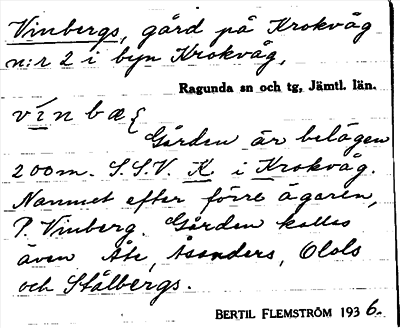 Vinbergs, gård på Krokvåg
n:r 2 i byn Krokvåg,
Ragunda sn och tg, Jämtl. län.
vinbæ{
Gården är belägen
200 m. S.S.V. K i Krokvåg.
Namnet efter förre ägaren,
P. Vinberg. Gården kallas
även Åte, Åsanders, Olols
och Stålbergs.
BERTIL FLEMSTRÖM 1936.